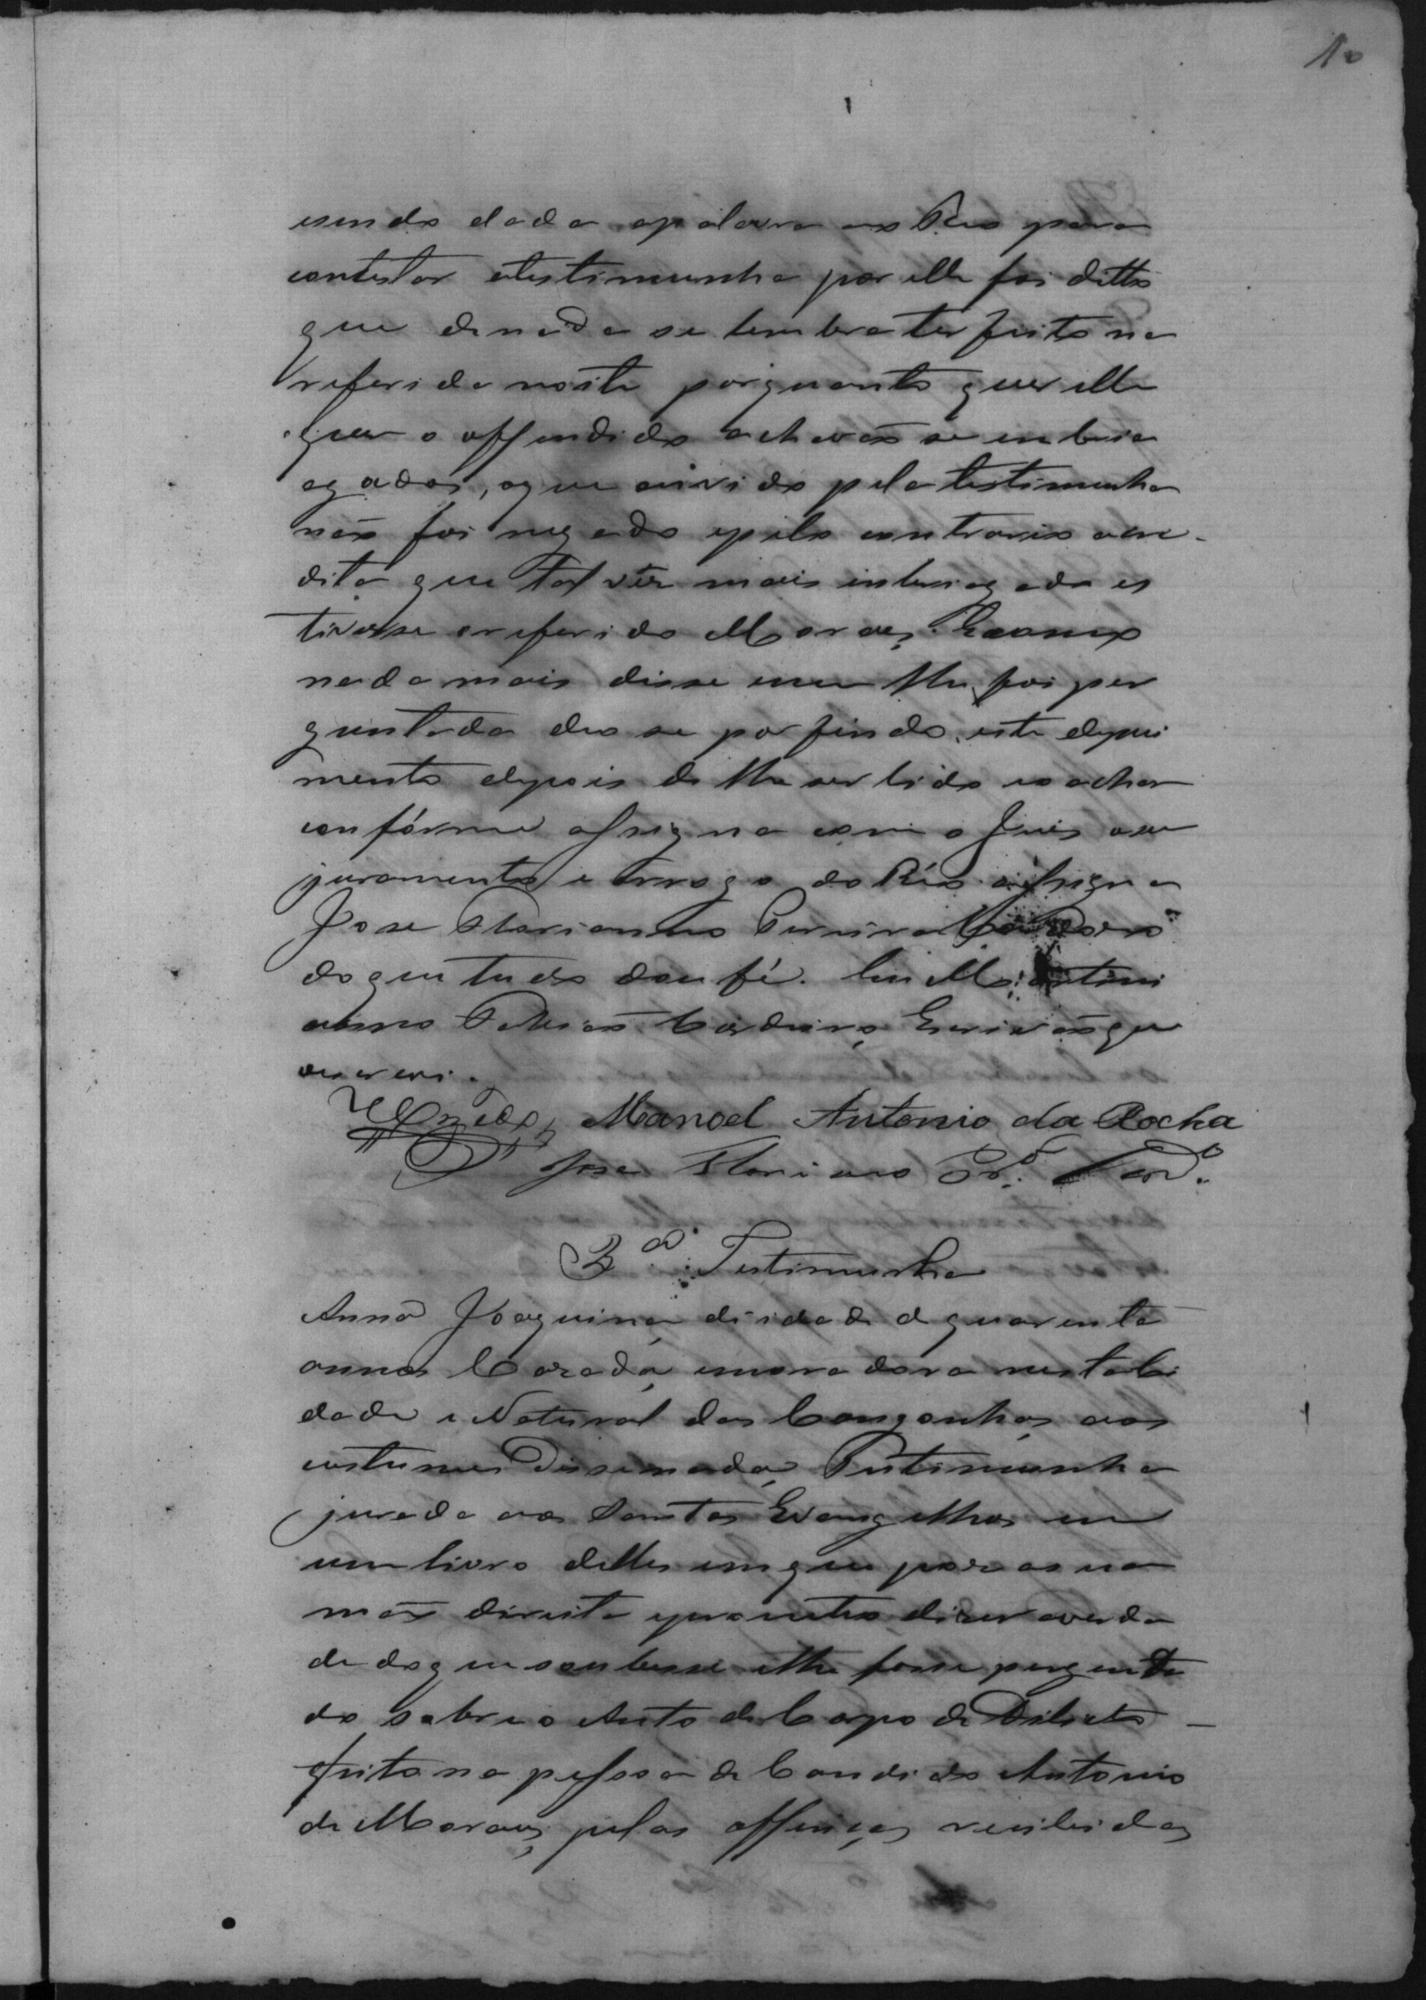 10
sendo dada apalavra ao Reo para
contestar atestimunha por elle foi ditto
que denada se lembra ter feito na
referida noite porquanto quer elle
quer o offendido achavão se enbria
agados, oque ouvido pela testimunha
não foi negado epelo contrario acre-
dita que talvez mais inbriagado es
tivesse oreferido Moraes. E como
nada mais disse nem lhe foi per
guntado deo se por findo este depoi
mento depois de lhe ser lido eo achar
confórme assigna com o Juis aseu
juramento e arrogo do Réo assigna
Jose Floriano Pereira Cordeiro
doque tudo dou fé. Eu
Cordeiro, Escrivão que
oescrevi.
Manoel Antonio da Rocha
Jose Floriano Pr.ª Cord.º
3ª Testimunha
Anna Joaquina, de idade de quarenta
annos Casada, moradora nesta Ci
dade e Natural das Congonhas, aos
costumes Disse nada, Testimunha
jurada aos Santos Evangelhos em
um livro delles em que poz asua
mão direita eprometeo dizer averda
de doque soubesse elhe fosse pergunta
do sobre o Auto de Corpo de Delicto
feito na pessoa de Candido Antonio
de Moraes, pelas offenças recebidas